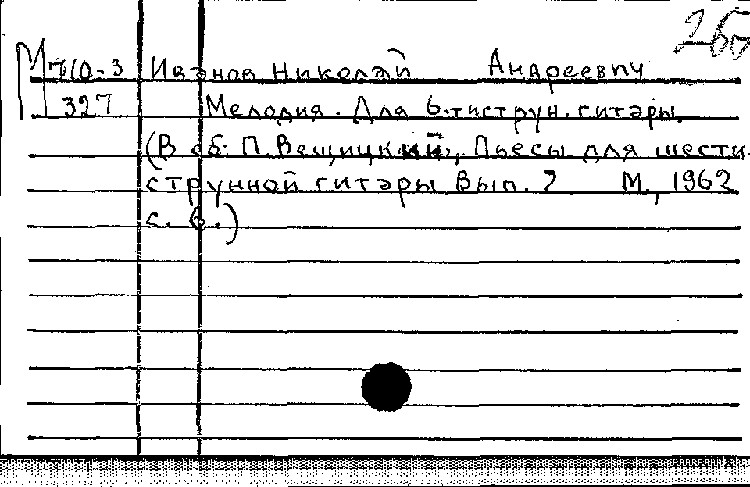 М 710-3 Иванов Николай Андреевич
327 Мелодия. Для 6-тиструн. гитары
(В сб: П. Вещицкий, Пьесы для шести-
струнной гитары Вып. 7 М., 1962
с. 6.)